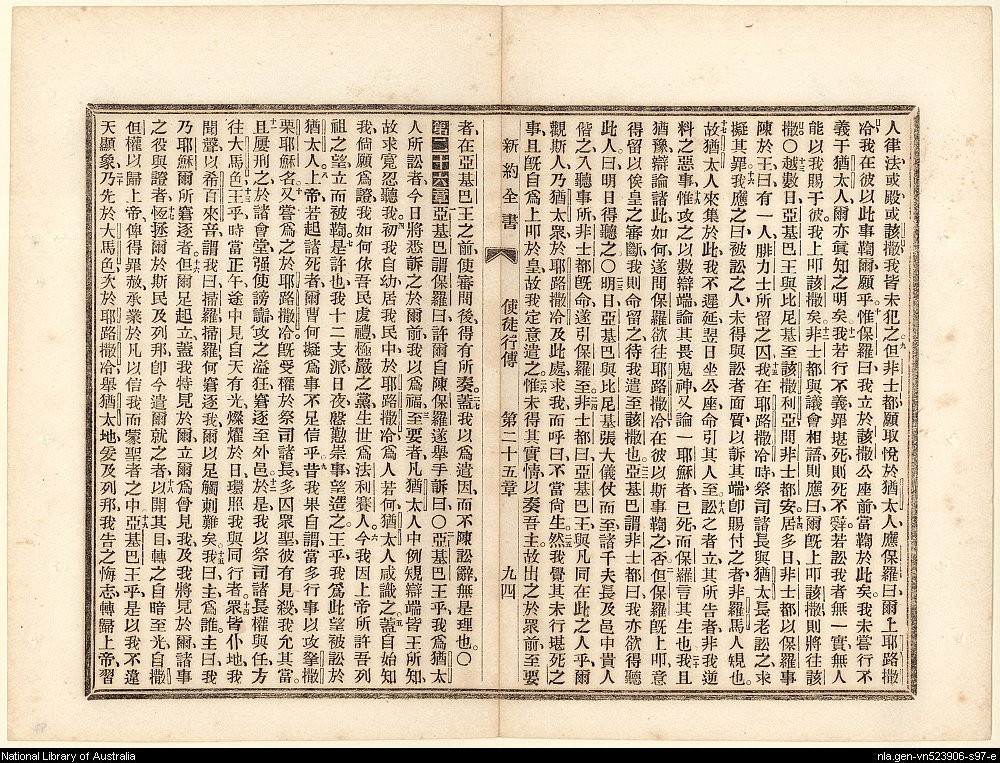 人律法或殿或該撒我皆未犯之但非士都願取悅於猶太人應保羅曰爾上耶路撒
冷我在彼以此事鞫爾願乎惟保羅曰我立於該撒公座前當鞫於此矣我未嘗行不
義于猶太人爾亦眞知之明矣我若行不義罪堪死則死不辭若訟我者無一實無人
能以我賜于彼我上叩該撒矣非士都與議會相語則應曰爾旣上叩該撒則將往該
撒〇越數日亞基巴王與比尼基至該撒利亞問非士都安居多日非士都以保羅事
陳於王曰有一人腓力士所留之囚我在耶路撒冷時祭司諸長與猶太長老訟之求
擬其罪我應之曰被訟之人未得與訟者面質以訴其端卽賜付之者非羅馬人規也
故猶太人來集於此我不遲延翌日坐公座命引其人至訟之者立其所告者非我逆
料之惡事惟攻之以數辯端論其畏鬼神又論一耶穌者已死而保羅言其生也我且
猶豫辯論諸此如何遂問保羅欲往耶路撒冷在彼以斯事鞫之否但保羅上叩意
得留以俟皇之審斷我則命留之待我遣至該撒也亞基巴謂非士都曰我亦欲得聽
此人曰明日得聽之〇明日亞基巴與比尼基張大儀仗而至諸千夫長及邑中貴人
偕之入聽事所非士都旣命遂引保羅至非士都曰亞基巴王與凡同在此之人乎爾
觀斯人乃猶太衆於耶路撒冷及此處求我而呼曰不當尙生然我覺其未行堪死之
事且旣自爲上叩於皇故我定意遣之惟未得其實情以奏吾主故出之於衆前至要
新約全書 使徒行傳 第二十五章 九四
者在亞基巴王之前使審問後得有所奏蓋我以爲遣囚而不陳訟辭無是理也〇
第二十六章亞基巴謂保羅曰許爾自陳保羅遂舉手訴曰〇亞基巴王乎我爲猶太
人所訟者今日將悉訴之於爾前我以爲福至要者凡猶太人中例規辯端皆王所知
故求寬忍聽我初我自幼居我民中於耶路撒冷爲人若何猶太人咸識之蓋自始知
我倘願爲證我如何依吾民虔禮極嚴之黨生世爲法利賽人今我因上帝所許吾列
祖之望立而被鞫是許也我十二支派日夜慇懃崇事望造之王乎我爲此望被訟於
猶太人上帝若起諸死者爾曹何擬爲事不足信乎昔我果自謂當多行事以攻拏撒
栗耶穌名又嘗爲之於耶路撒冷旣受權於祭司諸長多囚衆聖彼有見殺我允其當
且屢刑之於諸會堂强使謗讟攻之溢狂窘逐至外邑於是我以祭司諸長權與任方
往大馬色王乎時當正午途中見自天有光燦燿於日環照我與同行者衆皆仆地我
聞聲以希百來音謂我曰掃羅掃羅何窘逐我爾以足觸刺難矣我曰主爲誰主曰我
乃耶穌爾所窘逐者但爾足起立蓋我特見於爾立爾爲曾見我及我將見於爾諸事
之役與證者恆拯爾於斯民及列邦卽今遣爾就之者以開其目轉之自暗至光自撒
但權以歸上帝俾得罪赦承業於凡以信我而蒙聖者之中亞基巴王乎是以我不違
天顯象乃先於大馬色次於耶路撒冷舉猶太地爰及列邦我告之悔志轉歸上帝習
National Library of Australia
nla.gen-vn523906-s97-e